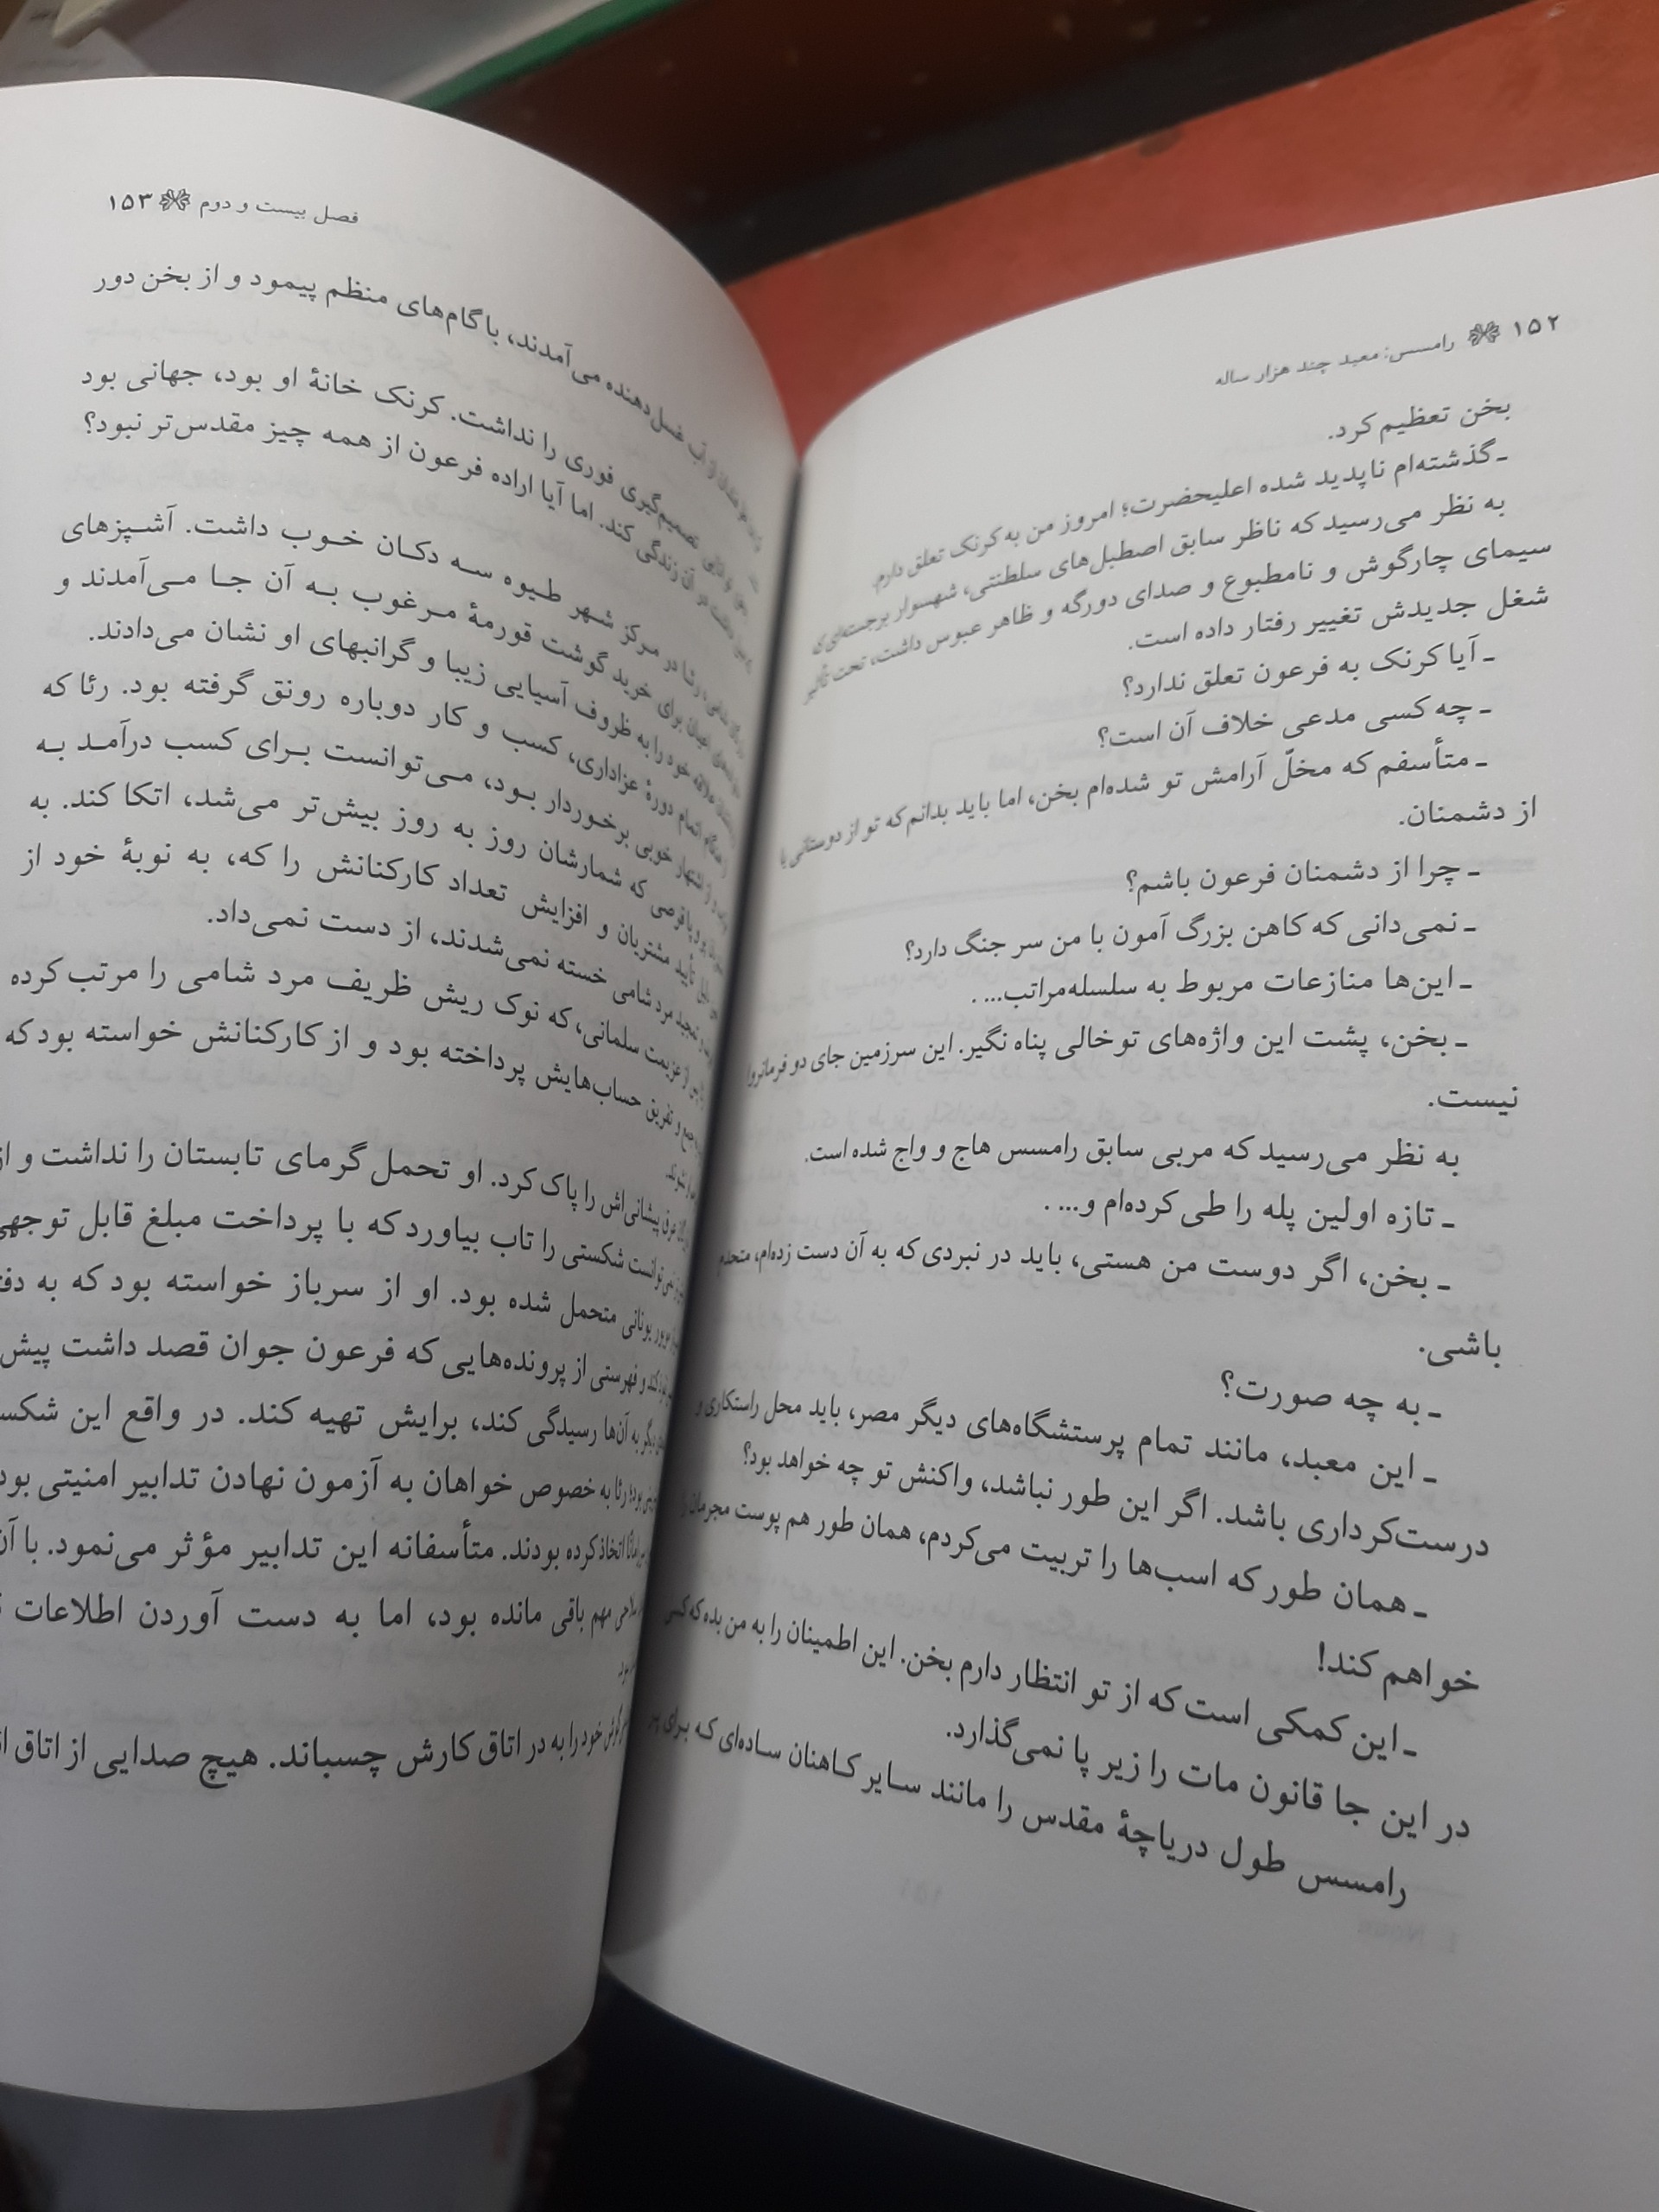 ۱۵۲ رامسس: معبد چند هزار ساله
بخن تعظیم کرد.
ـ گذشته‌ام ناپدید شده اعلیحضرت؛ امروز من به کرنک تعلق دارم.
به نظر می‌رسید که ناظر سابق اصطبل‌های سلطنتی، شهسوار برجسته‌ای که
سیمای چارگوش و نامطبوع و صدای دورگه و ظاهر عبوس داشت، تحت تأثیر
شغل جدیدش تغییر رفتار داده است.
ـ آیا کرنک به فرعون تعلق ندارد؟
ـ چه کسی مدعی خلاف آن است؟
ـ متأسفم که مخلّ آرامش تو شده‌ام بخن، اما باید بدانم که تو از دوستانی یا
از دشمنان.
ـ چرا از دشمنان فرعون باشم؟
ـ نمی‌دانی که کاهن بزرگ آمون با من سر جنگ دارد؟
ـ این‌ها منازعات مربوط به سلسله‌مراتب... .
ـ بخن، پشت این واژه‌های توخالی پناه نگیر. این سرزمین جای دو فرمانروا
نیست.
به نظر می‌رسید که مربی سابق رامسس هاج و واج شده است.
ـ تازه اولین پله را طی کرده‌ام و... .
ـ بخن، اگر دوست من هستی، باید در نبردی که به آن دست زده‌ام، متحدم
باشی.
ـ به چه صورت؟
ـ این معبد، مانند تمام پرستشگاه‌های دیگر مصر، باید محل راستکاری و
درست‌کرداری باشد. اگر این طور نباشد، واکنش تو چه خواهد بود؟
ـ همان طور که اسب‌ها را تربیت می‌کردم، همان طور هم پوست مجرمان را
خواهم کند!
ـ این کمکی است که از تو انتظار دارم بخن. این اطمینان را به من بده که کسی
در این جا قانون مات را زیر پا نمی‌گذارد.
رامسس طول دریاچهٔ مقدس را مانند سایر کاهنان ساده‌ای که برای پر
فصل بیست و دوم ۱۵۳
از آب غسل‌دهنده می‌آمدند، با گام‌های منظم پیمود و از بخن دور
تصمیم‌گیری فوری را نداشت. کرنک خانهٔ او بود، جهانی بود
در آن زندگی کند. اما آیا اراده فرعون از همه چیز مقدس‌تر نبود؟
رئا در مرکز شهر طیوه سه دکان خوب داشت. آشپزهای
برای خرید گوشت قورمهٔ مرغوب به آن جا می‌آمدند و
علاقه خود را به ظروف آسیایی زیبا و گرانبهای او نشان می‌دادند.
اتمام دورهٔ عزاداری، کسب و کار دوباره رونق گرفته بود. رئا که
از اشتهار خوبی برخوردار بود، می‌توانست برای کسب درآمد به
که شمارشان روز به روز بیش‌تر می‌شد، اتکا کند. به
تأیید مشتریان و افزایش تعداد کارکنانش را که، به نوبهٔ خود از
تمجید مرد شامی خسته نمی‌شدند، از دست نمی‌داد.
از عزیمت سلمانی، که نوک ریش ظریف مرد شامی را مرتب کرده
جمع و تفریق حساب‌هایش پرداخته بود و از کارکنانش خواسته بود که
عرق پیشانی‌اش را پاک کرد. او تحمل گرمای تابستان را نداشت و از
نمی‌توانست شکستی را تاب بیاورد که با پرداخت مبلغ قابل توجهی
یونانی متحمل شده بود. او از سرباز خواسته بود که به
و فهرستی از پرونده‌هایی که فرعون جوان قصد داشت پیش
به آن‌ها رسیدگی کند، برایش تهیه کند. در واقع این
رئا به خصوص خواهان به آزمون نهادن تدابیر امنیتی بود
اتخاذ کرده بودند. متأسفانه این تدابیر مؤثر می‌نمود. با
مهم باقی مانده بود، اما به دست آوردن اطلاعات
گوش خود را به در اتاق کارش چسباند. هیچ صدایی از اتاق